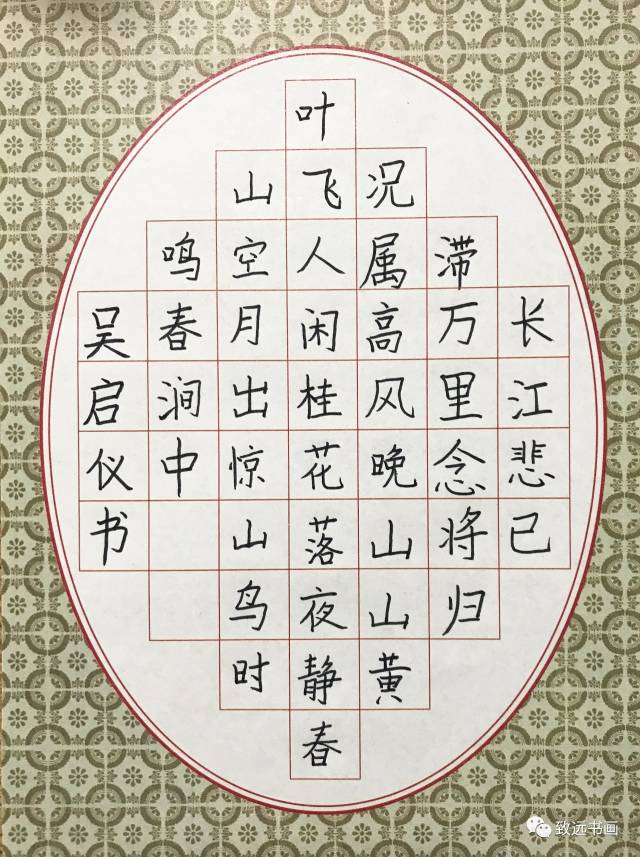 长江悲已
滞万里念将归
况属高风晚山山黄
叶飞人闲桂花落夜静春
山空月出惊山鸟时
鸣春涧中
吴启仪书
致远书画